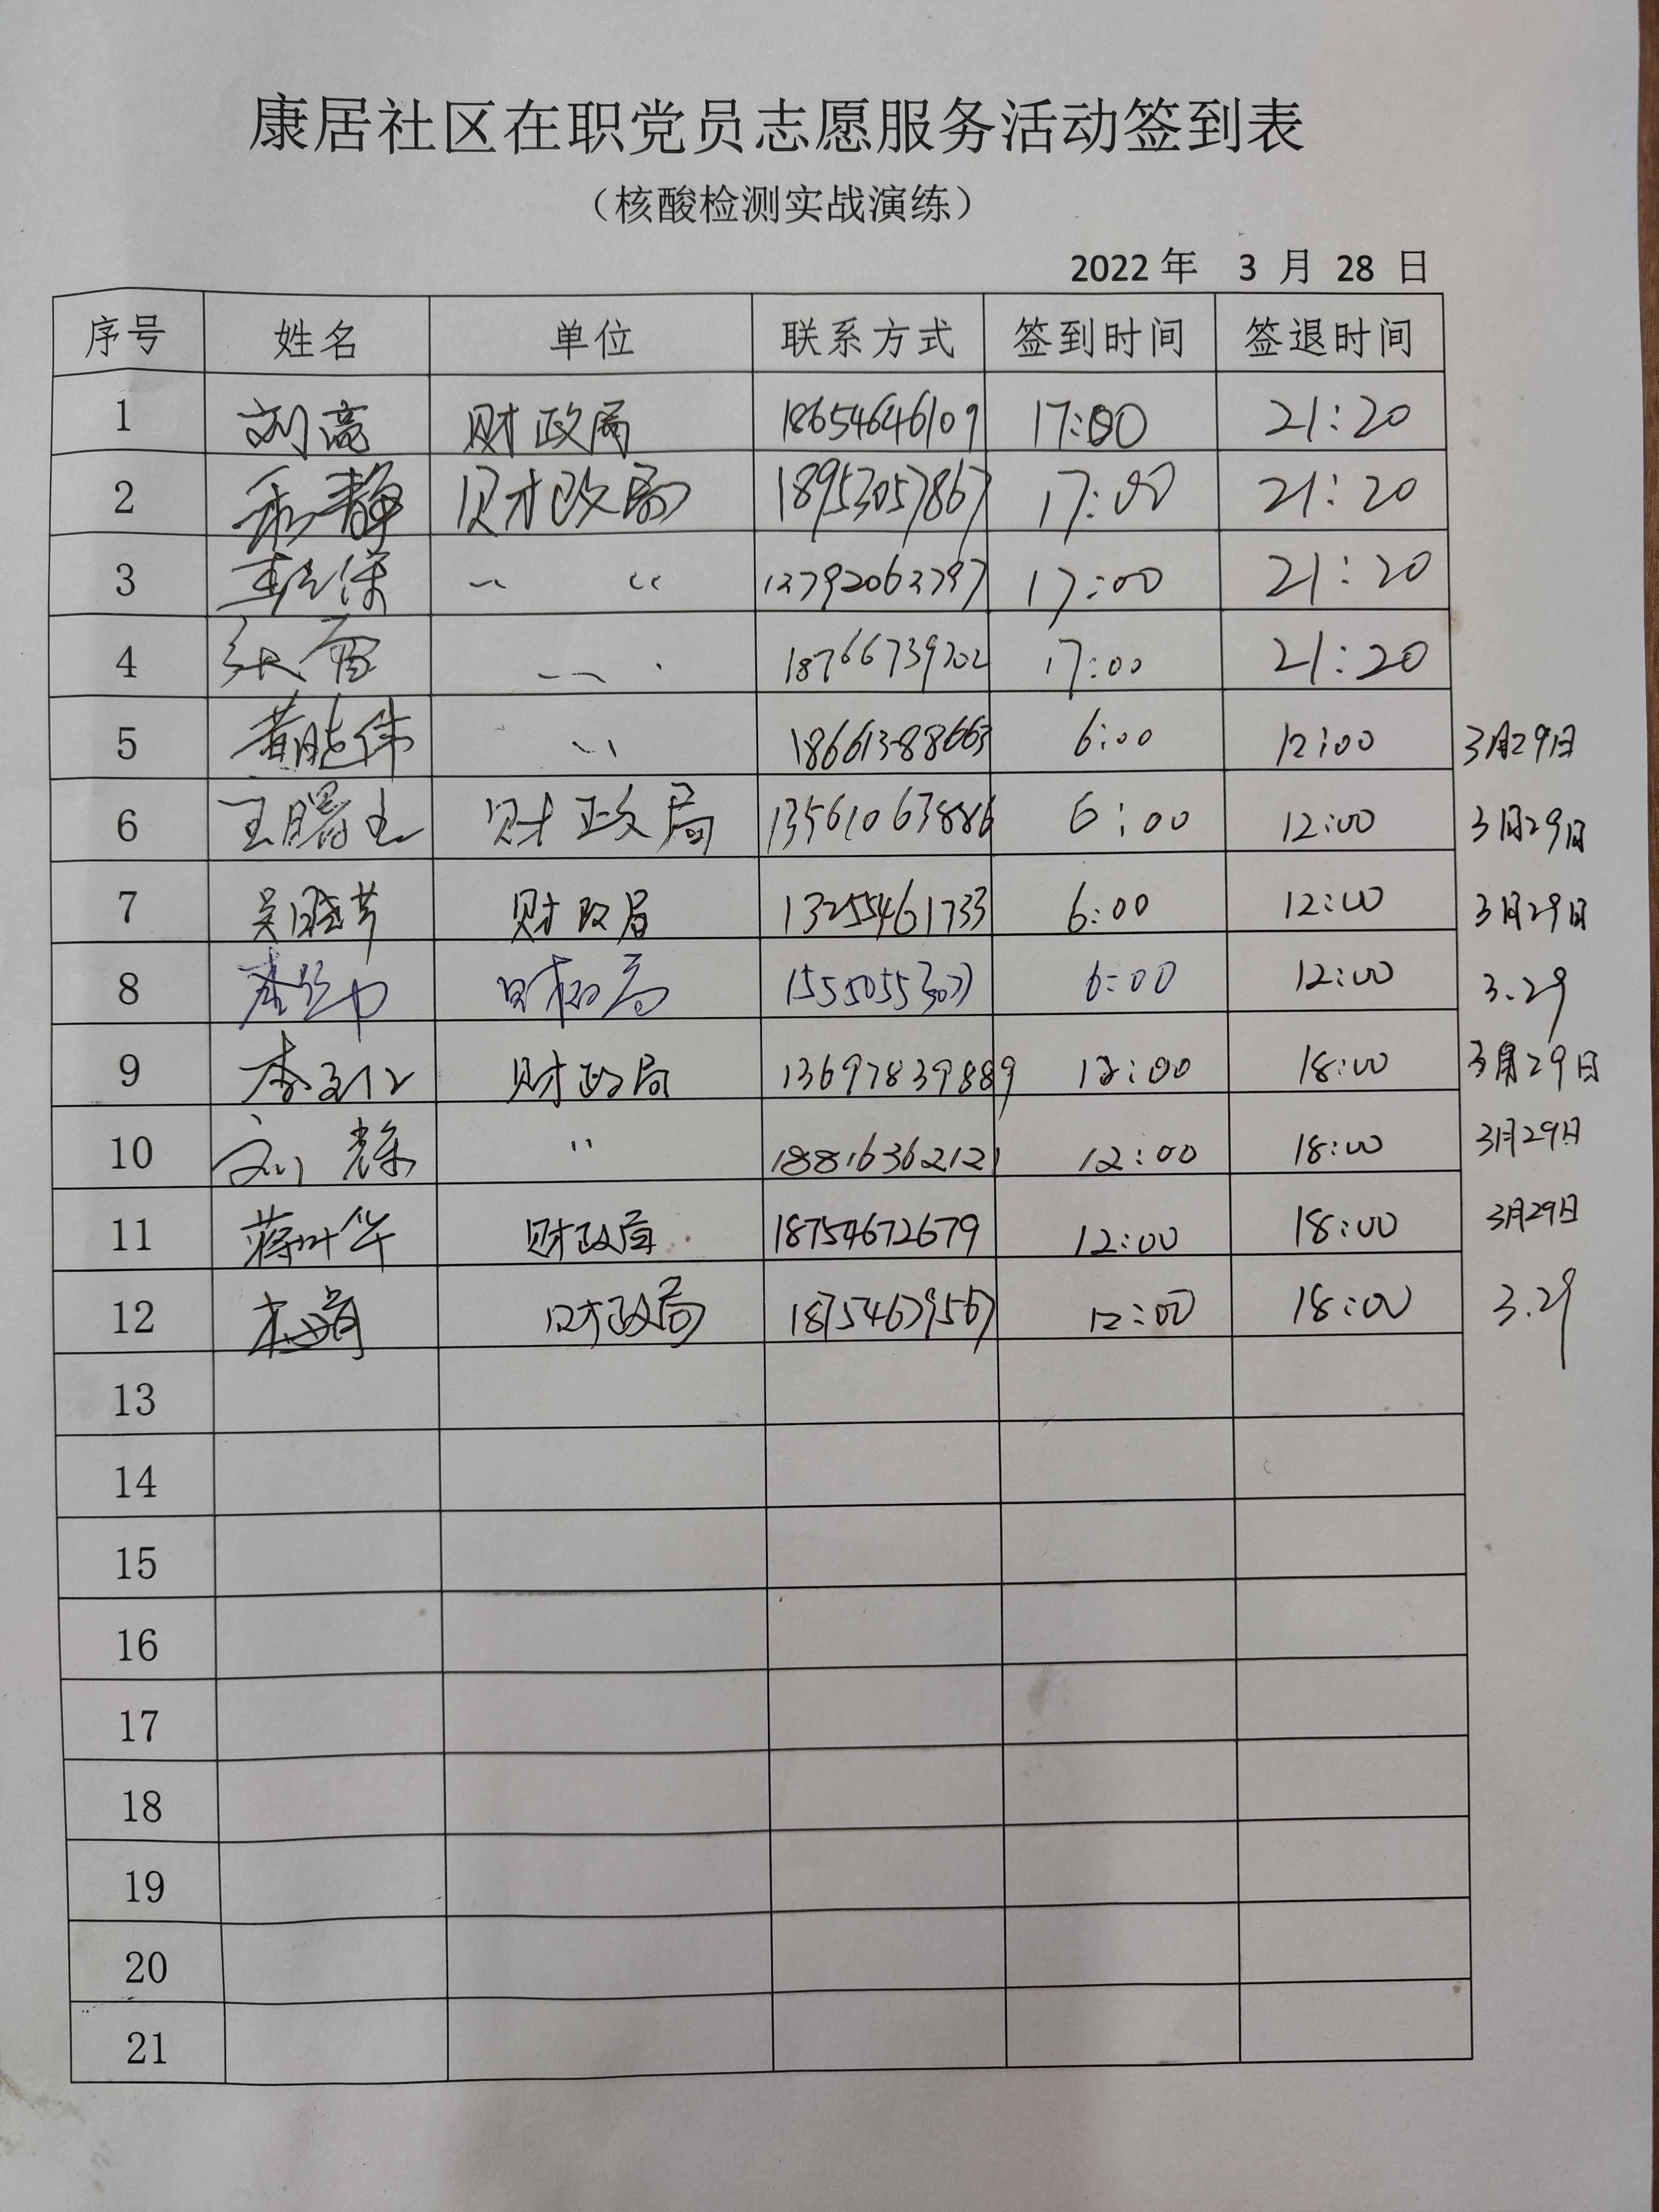 康居社区在职党员志愿服务活动签到表
（核酸检测实战演练）
2022 年 3 月 28 日
序号 姓名 单位 联系方式 签到时间 签退时间
1 刘亮 财政局 18654646109 17:00 21:20
2 静 财政局 18953057867 17:00 21:20
3 〃 17:00 21:20
4 张 〃 18766739202 17:00 21:20
5 黄 伟 〃 18661388663 6:00 12:00 3月29日
6 王曙 财政局 13561063886 6:00 12:00 3月29日
7 吴晓芳 财政局 13255461733 6:00 12:00 3月29日
8 李 财政局 6:00 12:00 3.29
9 李 财政局 13697839889 12:00 18:00 3月29日
10 刘 〃 18816362121 12:00 18:00 3月29日
11 蒋叶华 财政局 18754672679 12:00 18:00 3月29日
12 财政局 18754679567 12:00 18:00 3.29
13
14
15
16
17
18
19
20
21